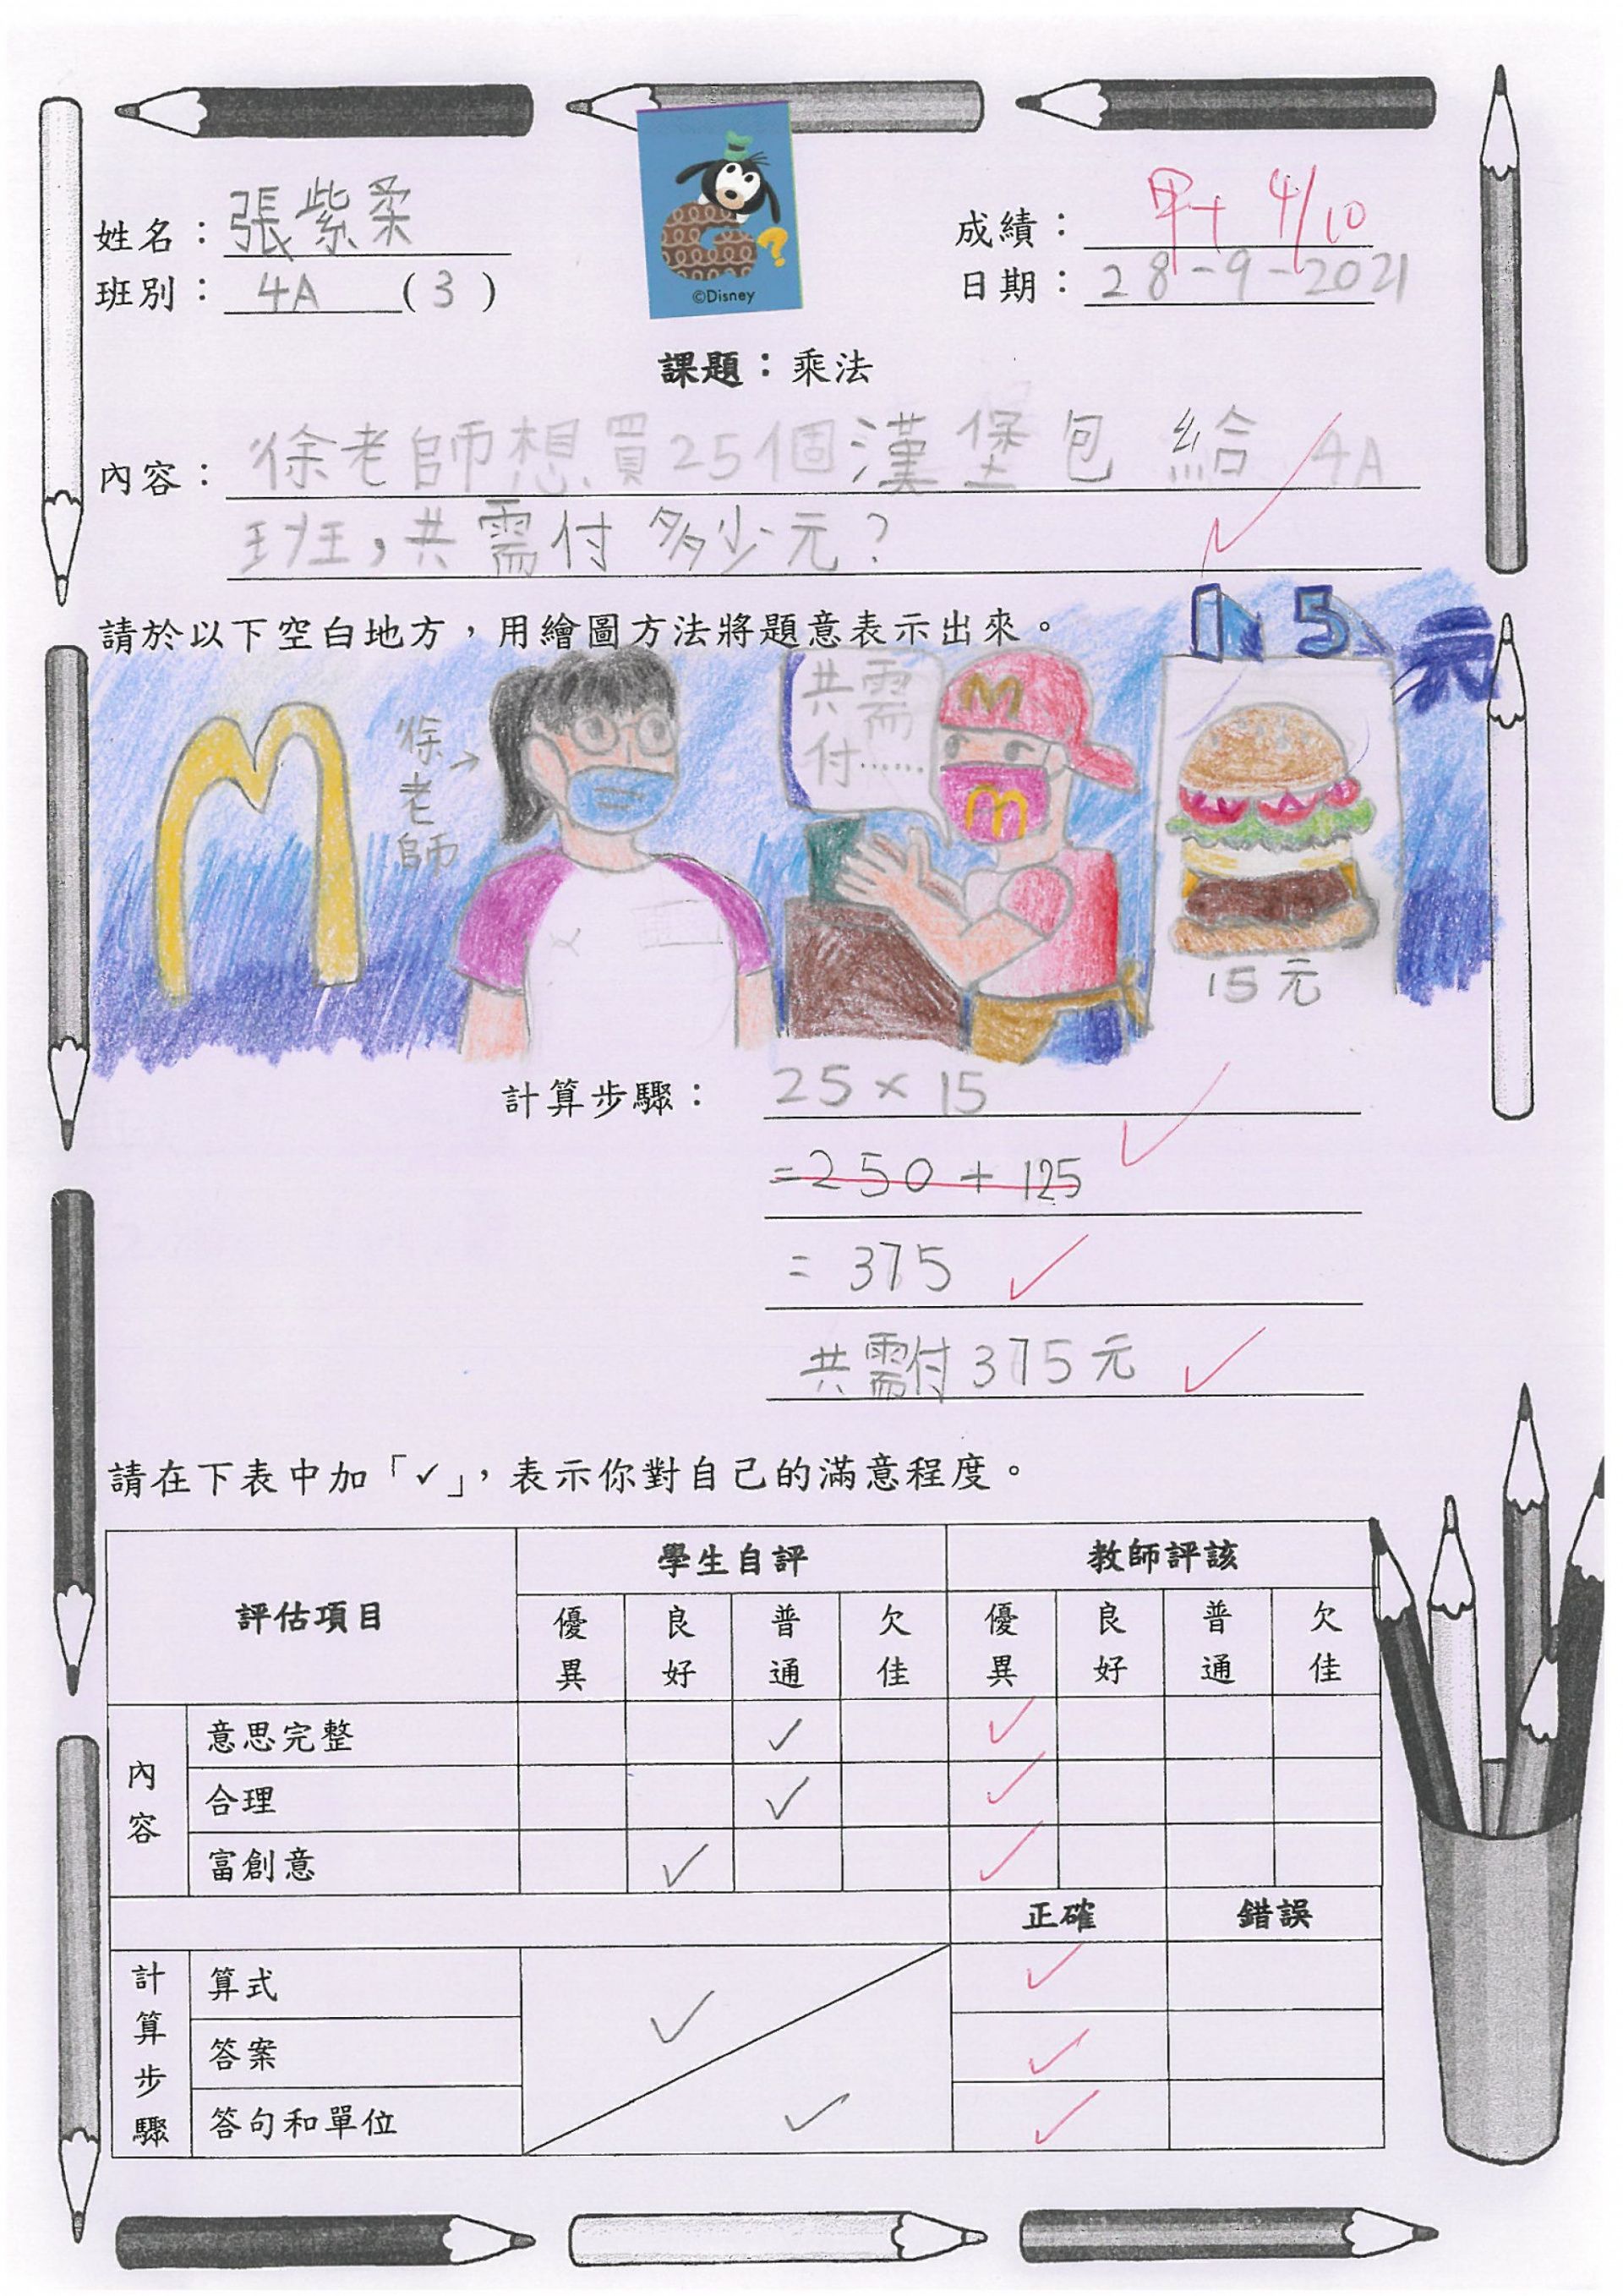 姓名：張紫柔
成績：甲+ 4/10
班別：4A (3)
日期：28-9-2021
©Disney
課題：乘法
內容：徐老師想買25個漢堡包 給 4A
班，共需付多少元？
請於以下空白地方，用繪圖方法將題意表示出來。
15元
M
徐老師
共需
付......
M
M
15元
計算步驟：25×15
=250+125
=375
共需付375元
請在下表中加「✓」，表示你對自己的滿意程度。
評估項目 學生自評 教師評該
優異 良好 普通 欠佳 優異 良好 普通 欠佳
內容
意思完整 ✓ ✓
合理 ✓ ✓
富創意 ✓ ✓
正確 錯誤
計算步驟
算式 ✓ ✓
答案 ✓
答句和單位 ✓ ✓